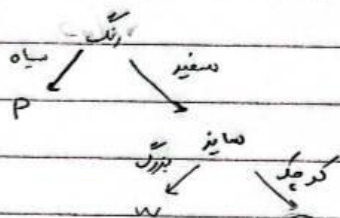 رنگ
سیاه سفید
P
سایز
بزرگ کوچک
W